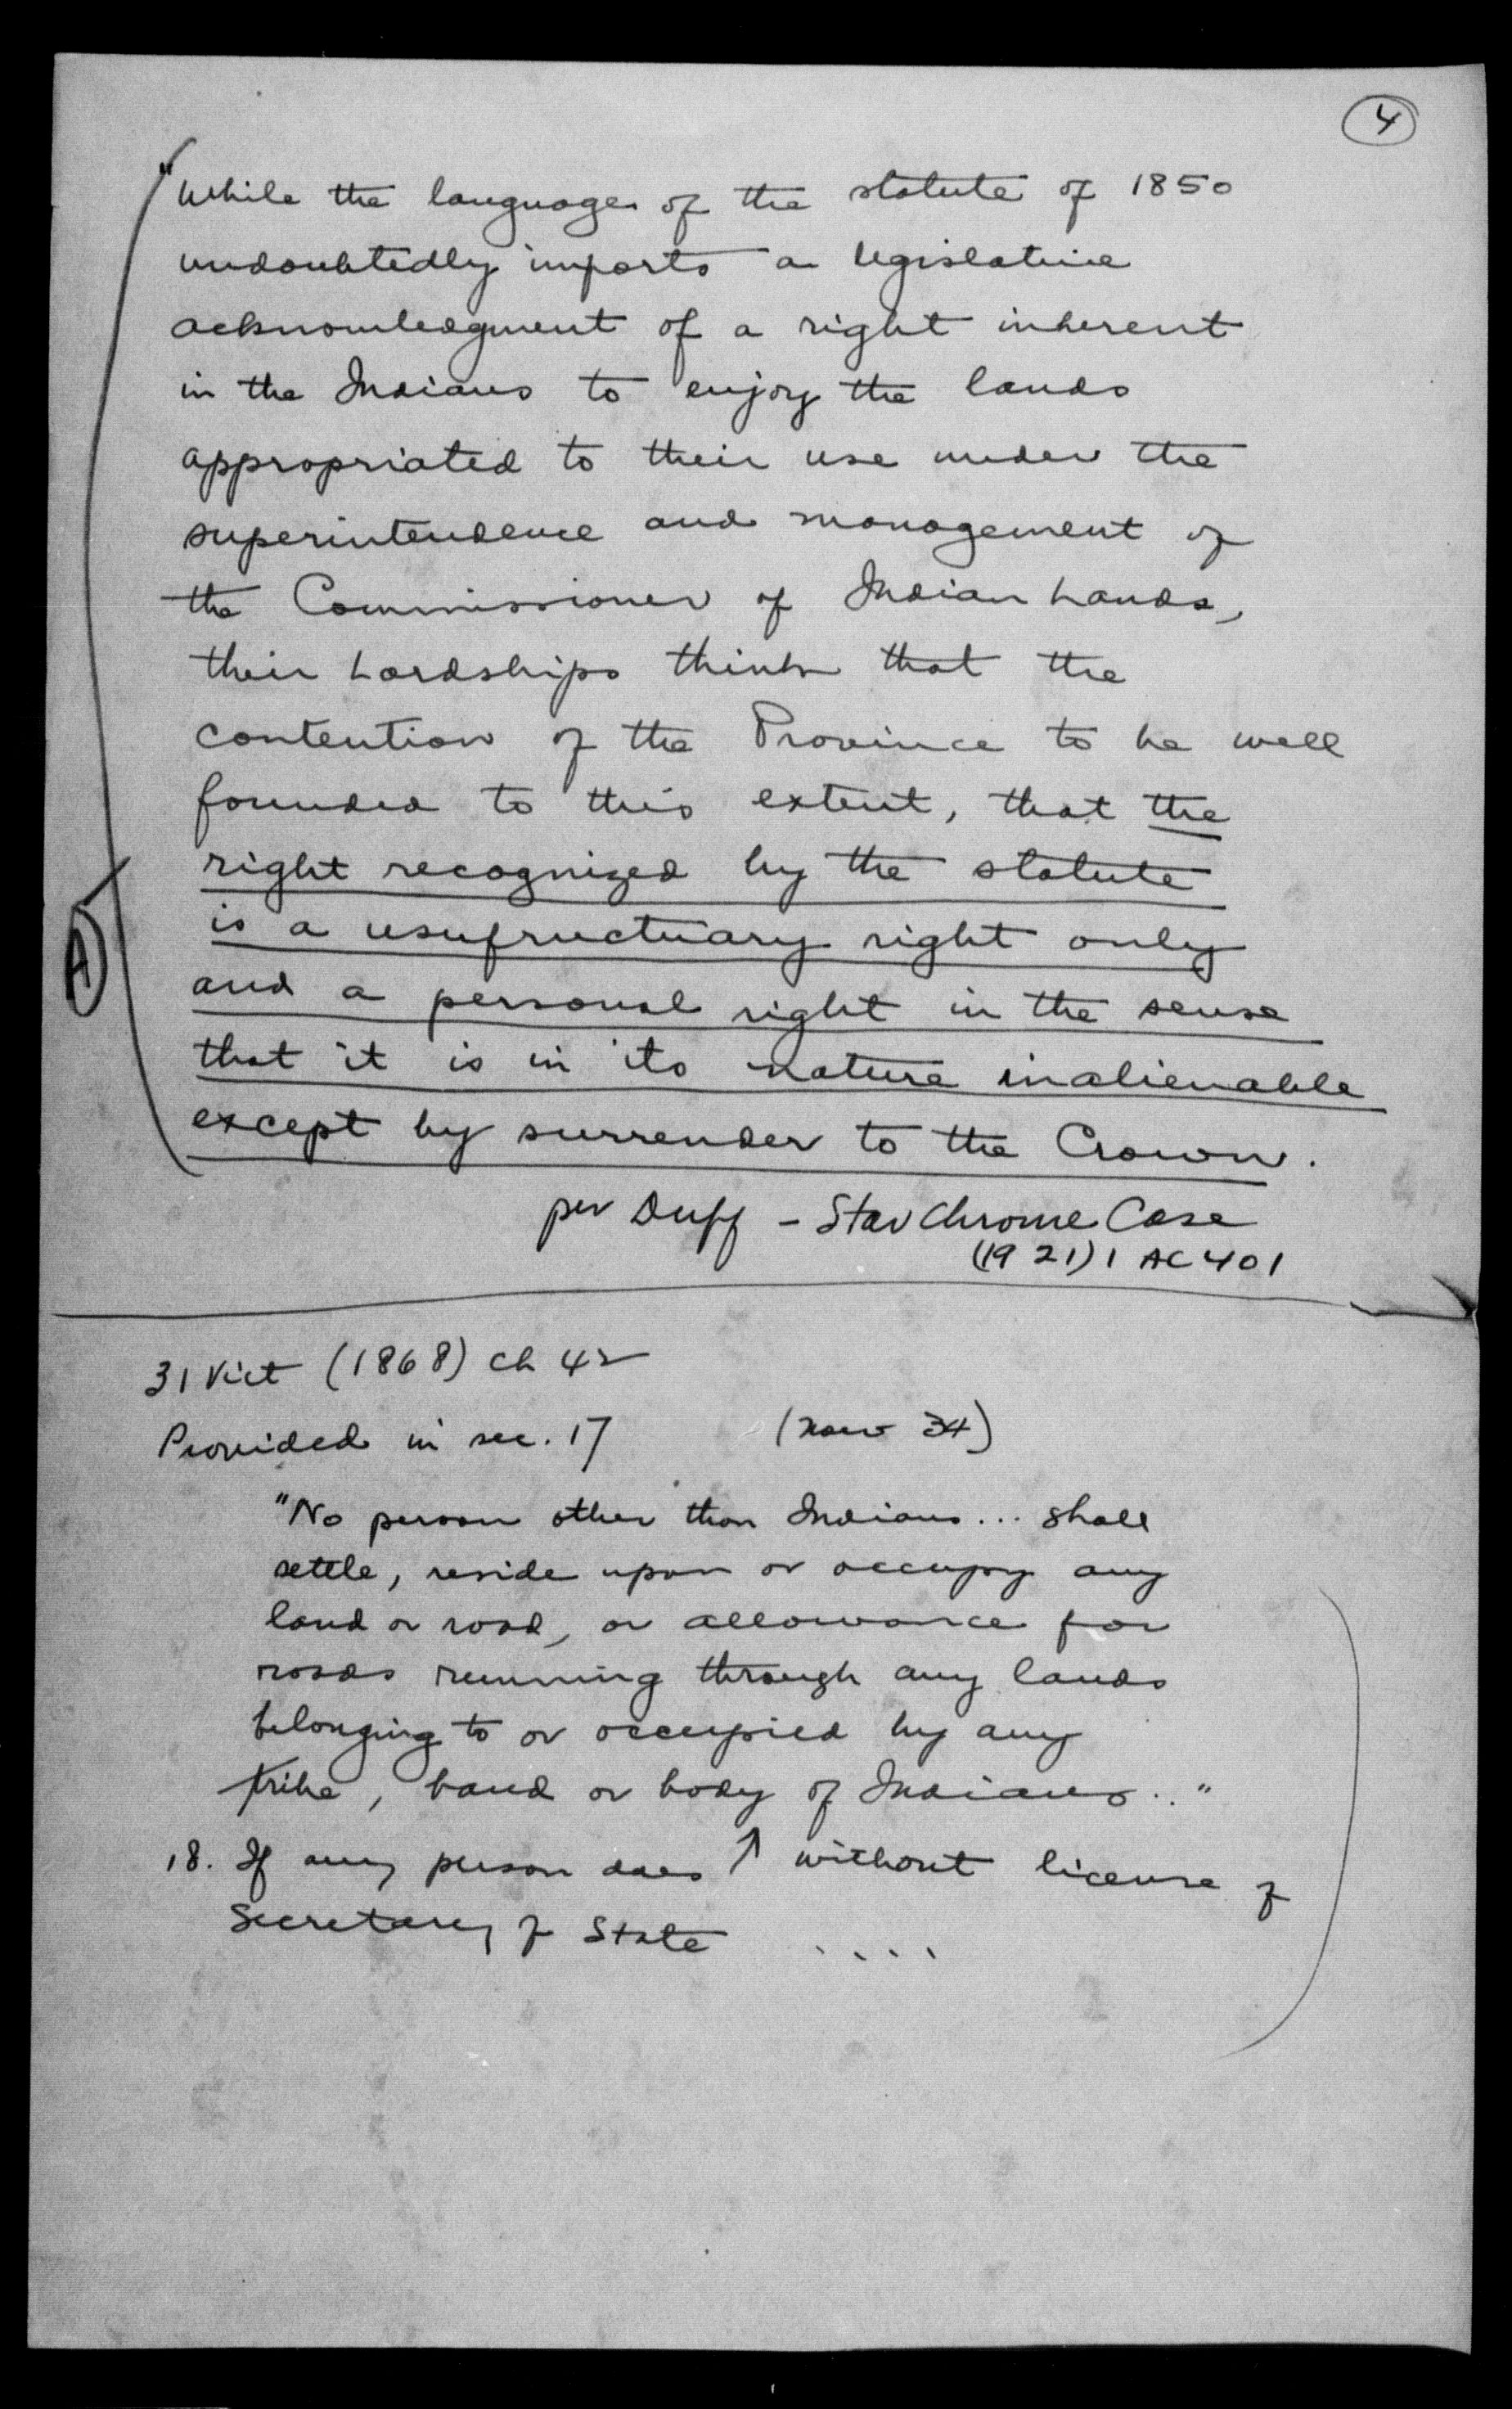 4
"While the language of the statute of 1850
undoubtedly imports a legislative
acknowledgment of a right inherent
in the Indians to enjoy the lands
appropriated to their use under the
superintendence and management of
the Commissioner of Indian Lands,
their Lordships think that the
contention of the Province to be well
founded to this extent, that the
right recognized by the statute
is a usufructuary right only
A
and a personal right in the sense
that it is in its nature inalienable
except by surrender to the Crown.
per Duff - Star Chrome Case
(1921) 1 AC 401
31 Vict (1868) ch 42
Provided in sec. 17 (now 34)
"No person other than Indians... shall
settle, reside upon or occupy any
land or road, or allowance for
roads running through any lands
belonging to or occupied by any
tribe, band or body of Indians.."
18. If any person does ↑ without license of
Secretary of State ....